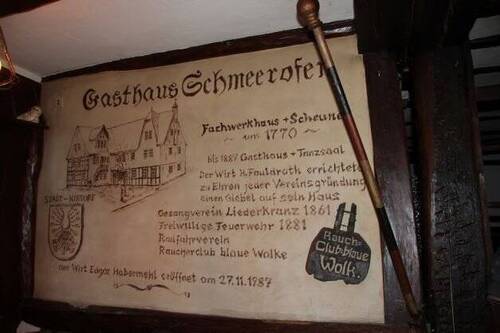 Gasthaus Schmeerofen
Fachwerkhaus + Scheune
~ um 1770 ~
bis 1887 Gasthaus + Tanzsaal
Der Wirt H. Fauldrath errichtete
zu Ehren jeder Vereinsgründung
einen Giebel auf sein Haus
Gesangverein LiederKranz 1861
Freiwillige Feuerwehr 1881
Radfahrverein
Raucherclub blaue Wolke
der Wirt Edgar Habermehl eröffnet am 27.11.1987
STADT
Rauch-
Club blaue
Wolk.